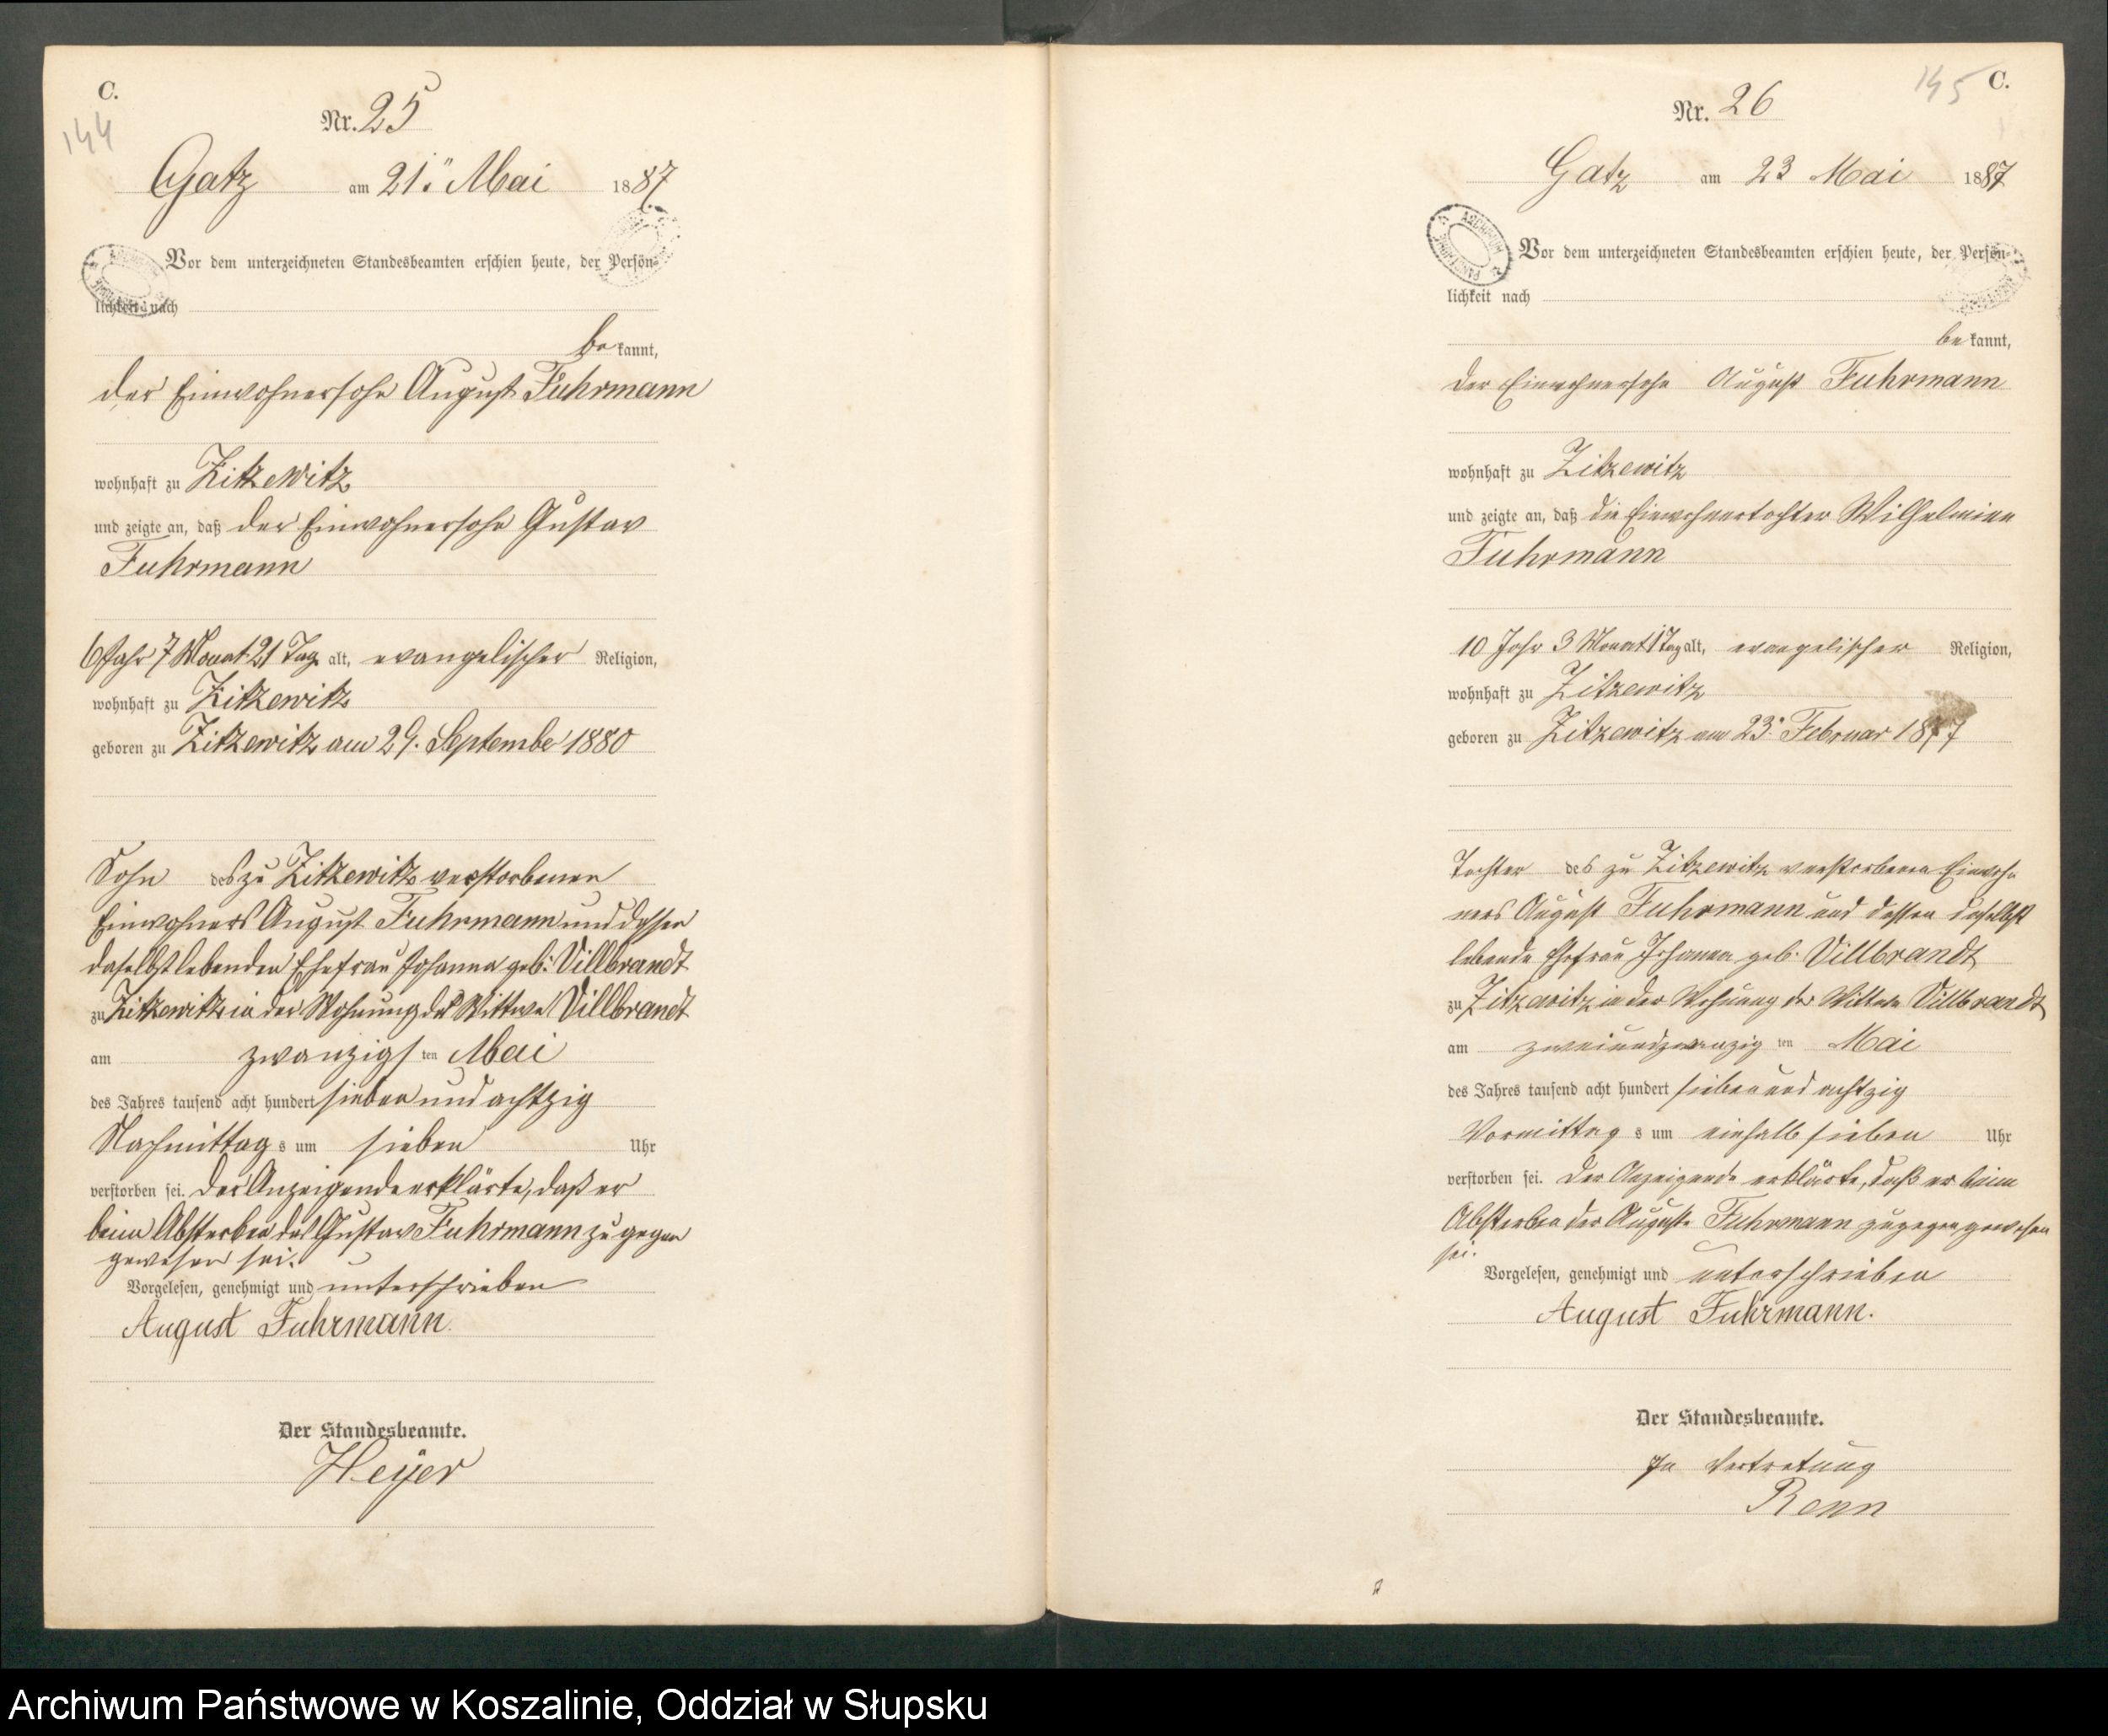 C.
144
Nr. 25
Gatz am 21. Mai 1887.
Vor dem unterzeichneten Standesbeamten erschien heute, der Persön-
lichkeit nach
bekannt,
der Einwohnersohn August Fuhrmann
wohnhaft zu Zitzewitz
und zeigte an, daß der Einwohnersohn Gustav
Fuhrmann
6 Jahr 7 Monat 21 Tag alt, evangelischer Religion,
wohnhaft zu Zitzewitz
geboren zu Zitzewitz am 29. September 1880
Sohn des zu Zitzewitz verstorbenen
Einwohners August Fuhrmann und dessen
daselbst lebenden Ehefrau Johanna geb. Villbrandt
zu Zitzewitz in der Wohnung der Wittwe Villbrandt
am zwanzigsten Mai
des Jahres tausend acht hundert sieben und achtzig
Nachmittags um sieben Uhr
verstorben sei. Der Anzeigende erklärte, daß er
beim Absterben des Gustav Fuhrmann zugegen
gewesen sei.
Vorgelesen, genehmigt und unterschrieben
August Fuhrmann.
Der Standesbeamte.
Heyer
145 C.
Nr. 26
Gatz am 23 Mai 1887
Vor dem unterzeichneten Standesbeamten erschien heute, der Persön-
lichkeit nach
bekannt,
der Einwohnersohn August Fuhrmann
wohnhaft zu Zitzewitz
und zeigte an, daß die Einwohnertochter Wilhelmine
Fuhrmann
10 Jahr 3 Monat 1 Tag alt, evangelischer Religion,
wohnhaft zu Zitzewitz
geboren zu Zitzewitz am 23. Februar 1877
Tochter des zu Zitzewitz verstorbenen Einwoh
ners August Fuhrmann und dessen daselbst
lebende Ehefrau Johanna geb. Villbrandt
zu Zitzewitz in der Wohnung der Wittwe Villbrandt
am zweiundzwanzigten Mai
des Jahres tausend acht hundert sieben und achtzig
Vormittags um einhalb sieben Uhr
verstorben sei. Der Anzeigende erklärte, daß er beim
Absterben der Auguste Fuhrmann zugegen gewesen
sei.
Vorgelesen, genehmigt und unterschrieben
August Fuhrmann.
Der Standesbeamte.
In Vertretung
Renn
Archiwum Państwowe w Koszalinie, Oddział w Słupsku